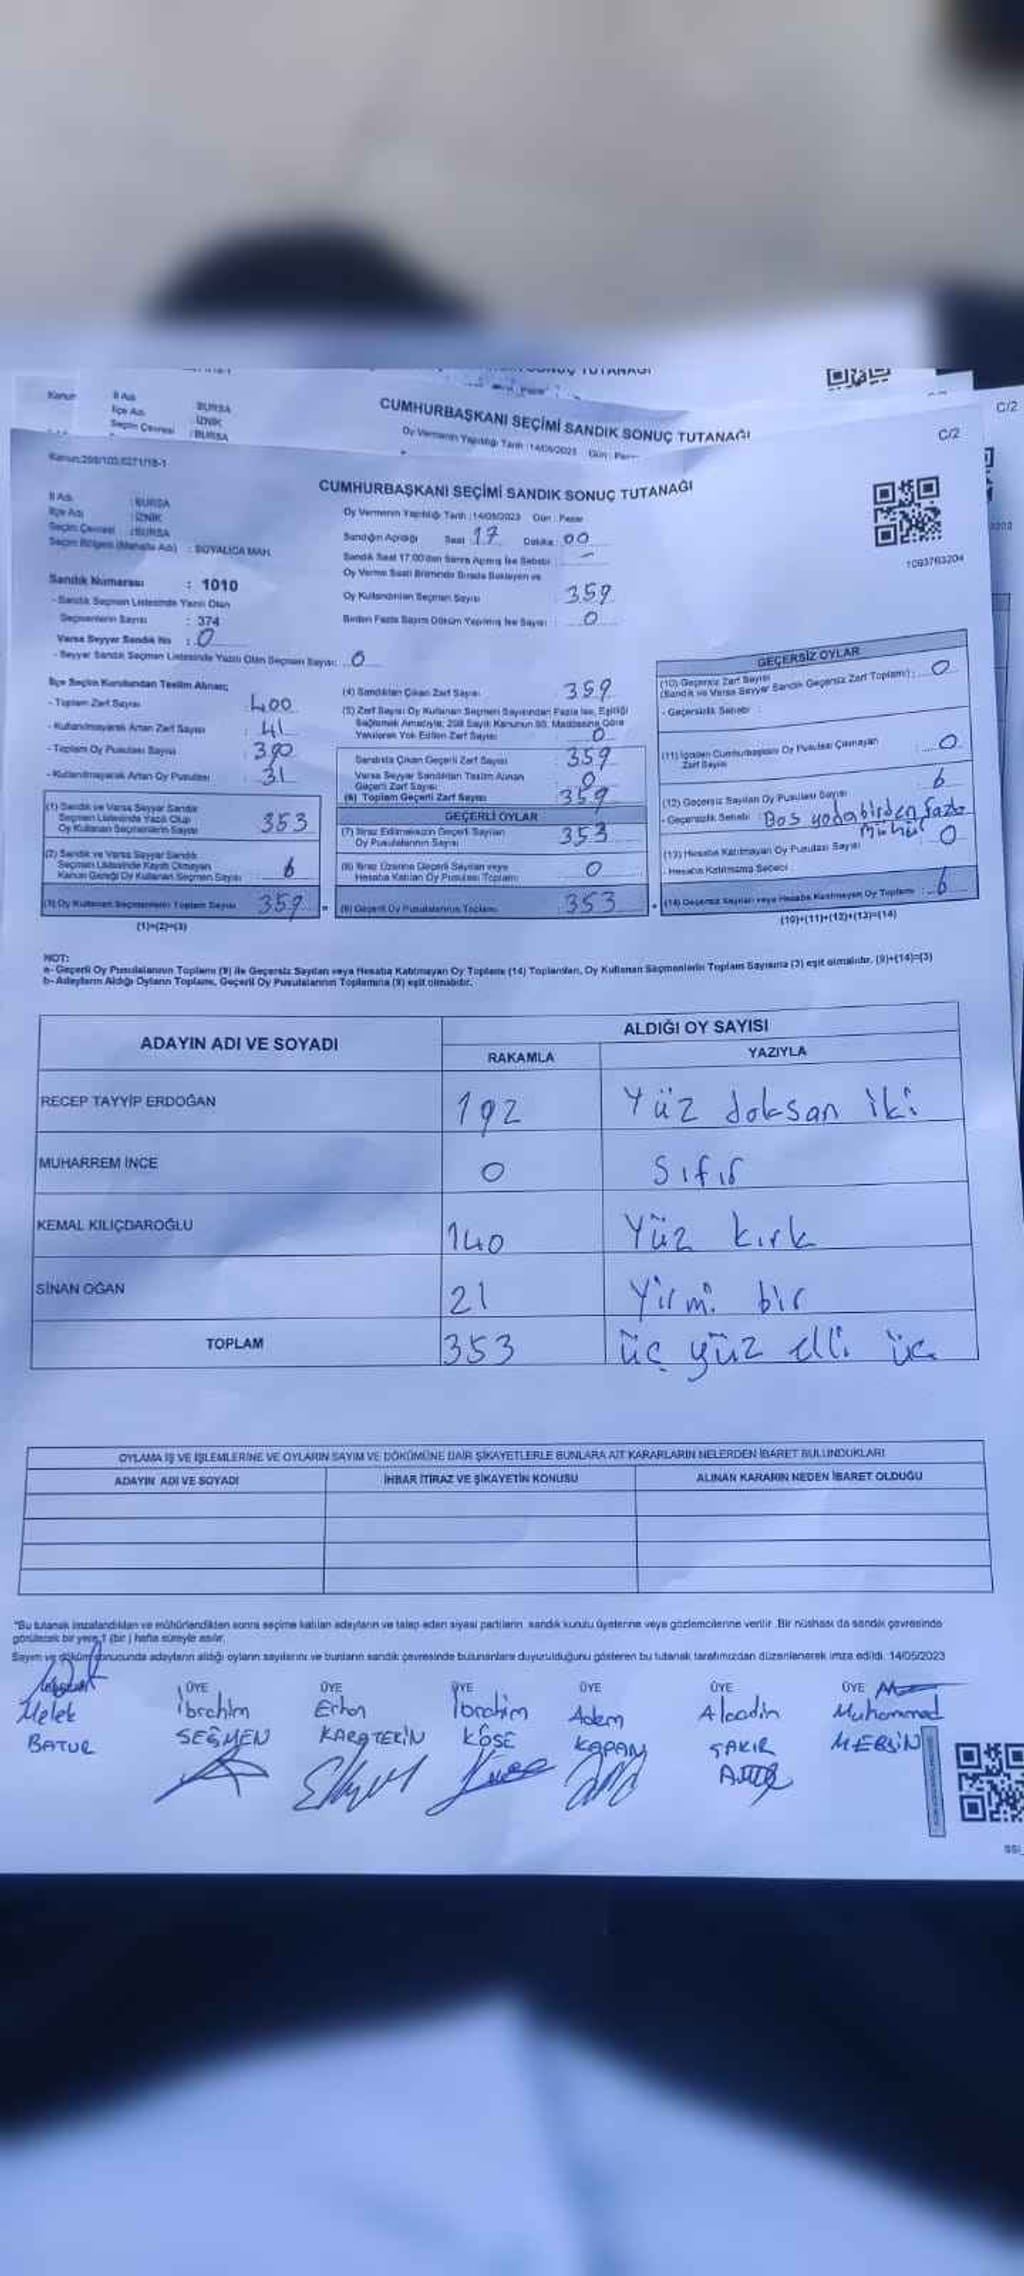 CUMHURBAŞKANI SEÇİMİ SANDIK SONUÇ TUTANAĞI
C/2
İl Adı
BURSA
İlçe Adı
İZNİK
Seçim Çevresi : BURSA
CUMHURBAŞKANI SEÇİMİ SANDIK SONUÇ TUTANAĞI
Oy Vermenin Yapıldığı Tarih : 14/05/2023 Gün :
C/2
İl Adı : BURSA
İlçe Adı : İZNİK
Seçim Çevresi : BURSA
Seçim Bölgesi (Mahalle Adı) : BOYALICA MAH.
Sandık Numarası : 1010
- Sandık Seçmen Listesinde Yazılı Olan
Seçmenlerin Sayısı : 374
Varsa Seyyar Sandık No : 0
- Seyyar Sandık Seçmen Listesinde Yazılı Olan Seçmen Sayısı: 0
CUMHURBAŞKANI SEÇİMİ SANDIK SONUÇ TUTANAĞI
Oy Vermenin Yapıldığı Tarih : 14/05/2023 Gün : Pazar
Sandığın Açıldığı Saat 17 Dakika : 00
Sandık Saat 17:00'den Sonra Açılmış İse Sebebi : -
Oy Verme Saati Bitiminde Sırada Bekleyen ve
Oy Kullandırılan Seçmen Sayısı : 359
Birden Fazla Sayım Döküm Yapılmış İse Sayısı : 0
1093763204
İlçe Seçim Kurulundan Teslim Alınan;
- Toplam Zarf Sayısı : 400
- Kullanılmayarak Artan Zarf Sayısı : 41
- Toplam Oy Pusulası Sayısı : 390
- Kullanılmayarak Artan Oy Pusulası : 31
(1) Sandık ve Varsa Seyyar Sandık
Seçmen Listesinde Yazılı Olup
Oy Kullanan Seçmenlerin Sayısı 353
(2) Sandık ve Varsa Seyyar Sandık
Seçmen Listesinde Kayıtlı Olmayan
Kanun Gereği Oy Kullanan Seçmen Sayısı 6
(3) Oy Kullanan Seçmenlerin Toplam Sayısı 359
(1)+(2)=(3)
(4) Sandıktan Çıkan Zarf Sayısı : 359
(5) Zarf Sayısı Oy Kullanan Seçmen Sayısından Fazla İse, Eşitliği
Sağlamak Amacıyla; 298 Sayılı Kanunun 98. Maddesine Göre
Yakılarak Yok Edilen Zarf Sayısı 0
Sandıkta Çıkan Geçerli Zarf Sayısı : 359
Varsa Seyyar Sandıktan Teslim Alınan
Geçerli Zarf Sayısı 0
(6) Toplam Geçerli Zarf Sayısı 359
GEÇERLİ OYLAR
(7) İtiraz Edilmeksizin Geçerli Sayılan
Oy Pusulalarının Sayısı 353
(8) İtiraz Üzerine Geçerli Sayılan veya
Hesaba Katılan Oy Pusulası Toplamı 0
(9) Geçerli Oy Pusulalarının Toplamı 353
GEÇERSİZ OYLAR
(10) Geçersiz Zarf Sayısı
(Sandık ve Varsa Seyyar Sandık Geçersiz Zarf Toplamı) : 0
- Geçersizlik Sebebi :
(11) İçinden Cumhurbaşkanı Oy Pusulası Çıkmayan
Zarf Sayısı 0
(12) Geçersiz Sayılan Oy Pusulası Sayısı 6
- Geçersizlik Sebebi : Boş yada birden fazla
Mühür
(13) Hesaba Katılmayan Oy Pusulası Sayısı 0
- Hesaba Katılmama Sebebi :
(14) Geçersiz Sayılan veya Hesaba Katılmayan Oy Toplamı : 6
(10)+(11)+(12)+(13)=(14)
NOT:
a- Geçerli Oy Pusulalarının Toplamı (9) ile Geçersiz Sayılan veya Hesaba Katılmayan Oy Toplamı (14) Toplamları, Oy Kullanan Seçmenlerin Toplam Sayısına (3) eşit olmalıdır. (9)+(14)=(3)
b- Adayların Aldığı Oyların Toplamı, Geçerli Oy Pusulalarının Toplamına (9) eşit olmalıdır.
ADAYIN ADI VE SOYADI
ALDIĞI OY SAYISI
RAKAMLA YAZIYLA
RECEP TAYYİP ERDOĞAN 192 Yüz doksan iki
MUHARREM İNCE 0 Sıfır
KEMAL KILIÇDAROĞLU 140 Yüz kırk
SİNAN OĞAN 21 Yirmi bir
TOPLAM 353 üç yüz elli üç
OYLAMA İŞ VE İŞLEMLERİNE VE OYLARIN SAYIM VE DÖKÜMÜNE DAİR ŞİKAYETLERLE BUNLARA AİT KARARLARIN NELERDEN İBARET BULUNDUKLARI
ADAYIN ADI VE SOYADI İHBAR İTİRAZ VE ŞİKAYETİN KONUSU ALINAN KARARIN NEDEN İBARET OLDUĞU
"Bu tutanak imzalandıktan ve mühürlendikten sonra seçime katılan adayların ve talep eden siyasi partilerin sandık kurulu üyelerine veya gözlemcilerine verilir. Bir nüshası da sandık çevresinde
görülecek bir yere 1 (bir) hafta süreyle asılır.
Sayım ve döküm sonucunda adayların aldığı oyların sayılarını ve bunların sandık çevresinde bulunanlara duyurulduğunu gösteren bu tutanak tarafımızdan düzenlenerek imza edildi. 14/05/2023
ÜYE ÜYE ÜYE ÜYE ÜYE ÜYE
Melek İbrahim Erhan İbrahim Adem Alaadin Muhammed
BATUR SEĞMEN KARATEKİN KÖSE KAPAN ŞAKIR MERSİN